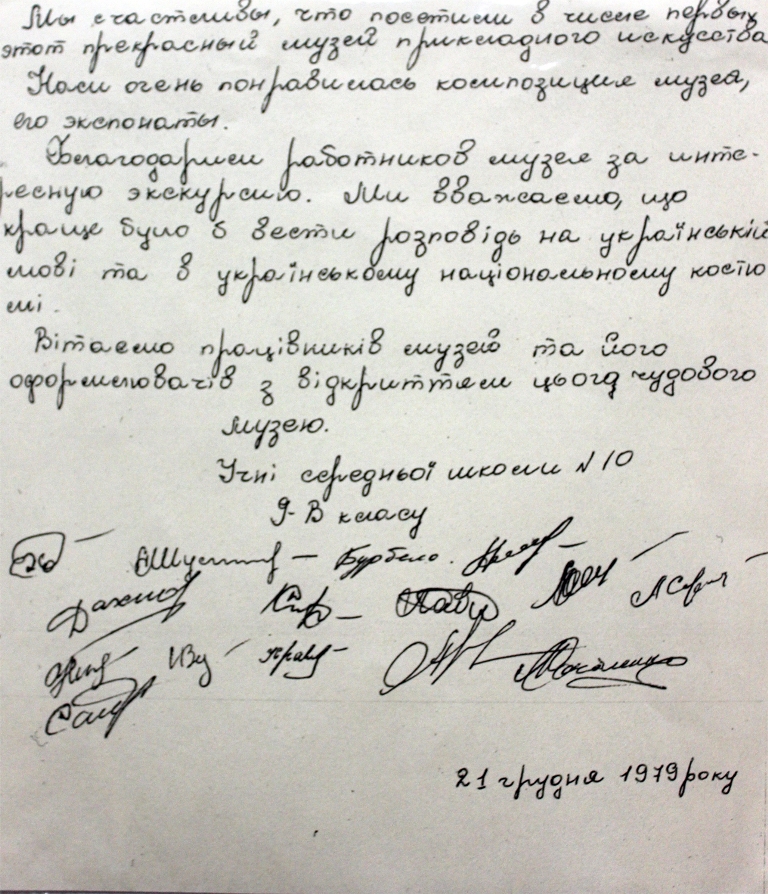 Мы счастливы, что посетили в числе первых
этот прекрасный музей прикладного искусства
Нам очень понравилась композиция музея,
его экспонаты.
Благодарим работников музея за инте-
ресную экскурсию. Ми вважаємо, що
краще було б вести розповідь на українській
мові та в українському національному костю
мі.
Вітаємо працівників музею та його
оформлювачів з відкриттям цього чудового
музею.
Учні середньої школи N 10
9-В класу
Бурбело.
21 грудня 1979 року